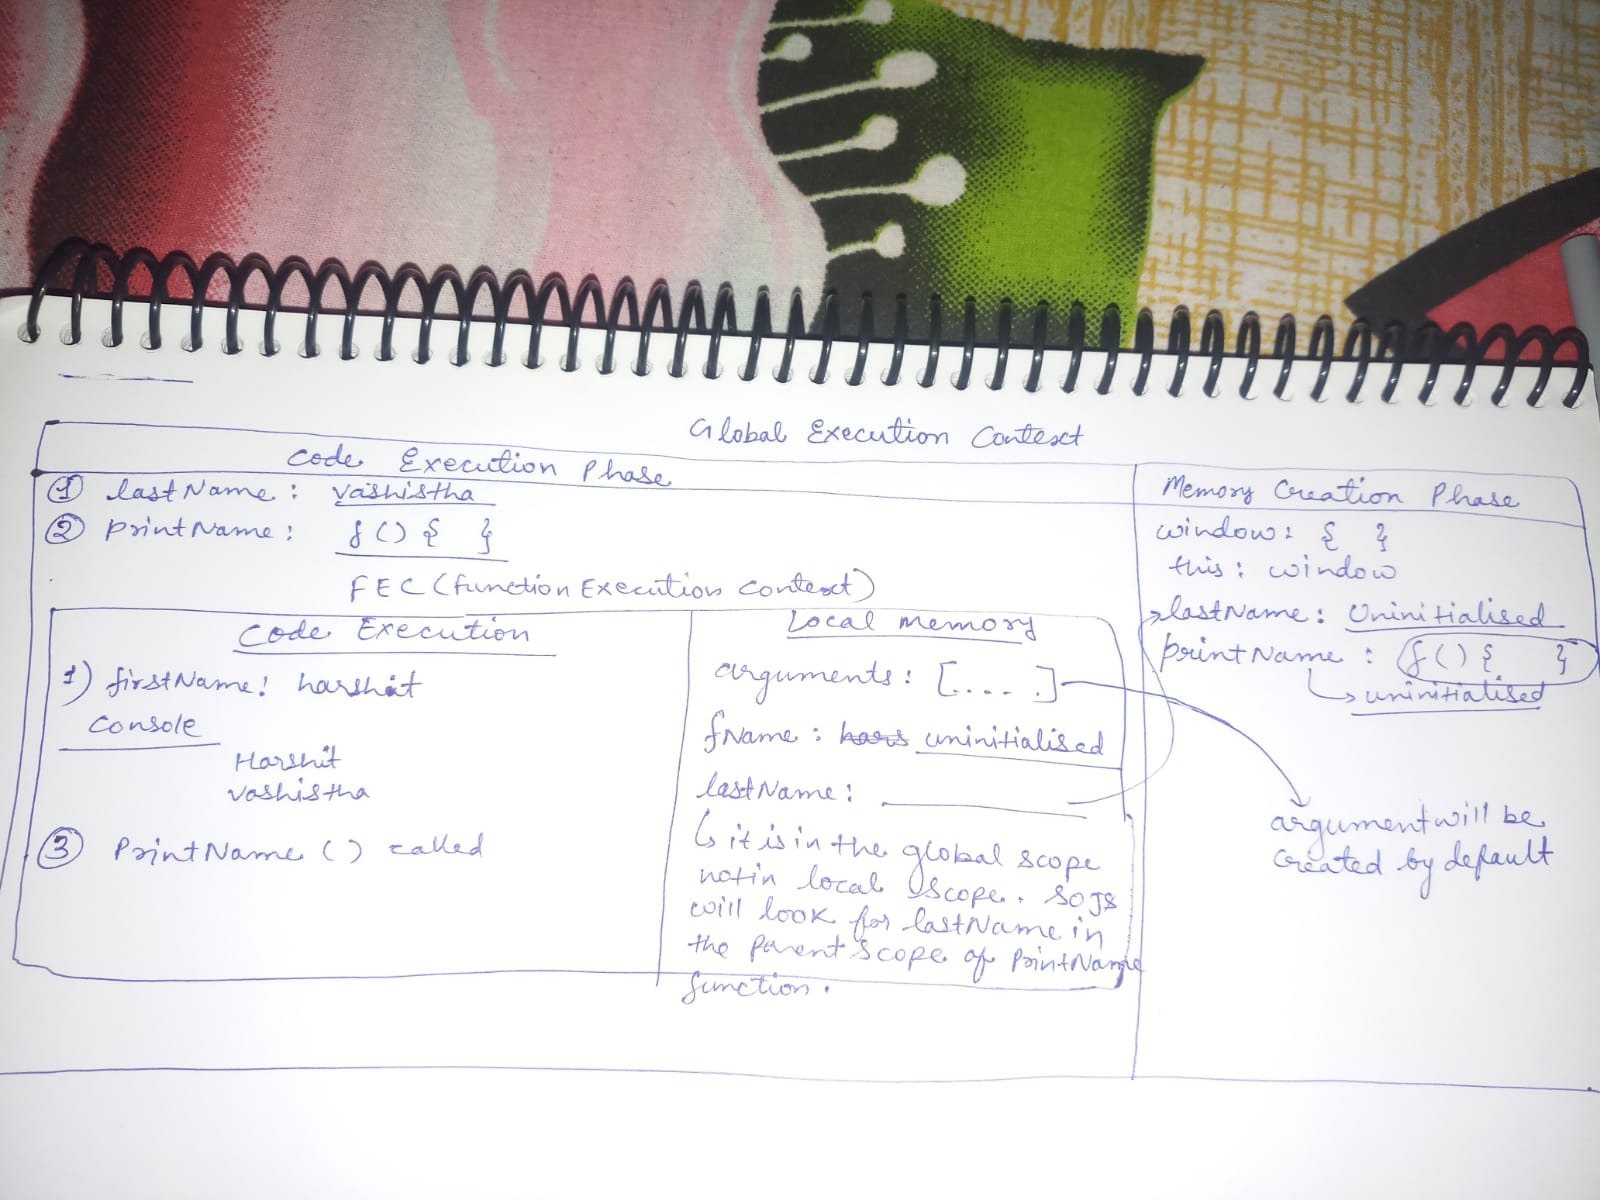 Global Execution Context
Code Execution Phase
① lastName: vashistha
② printName: f() { }
FEC (function Execution Context)
Code Execution
1) firstName: harshit
Console
Harshit
vashistha
③ PrintName () called
Local memory
arguments: [.... .]
fName: uninitialised
lastName: ________
↳ it is in the global scope
not in local scope. so JS
will look for lastName in
the parent scope of printName
function.
Memory Creation Phase
window: { }
this: window
lastName: Uninitialised
printName: f() { }
↳ uninitialised
argument will be
created by default